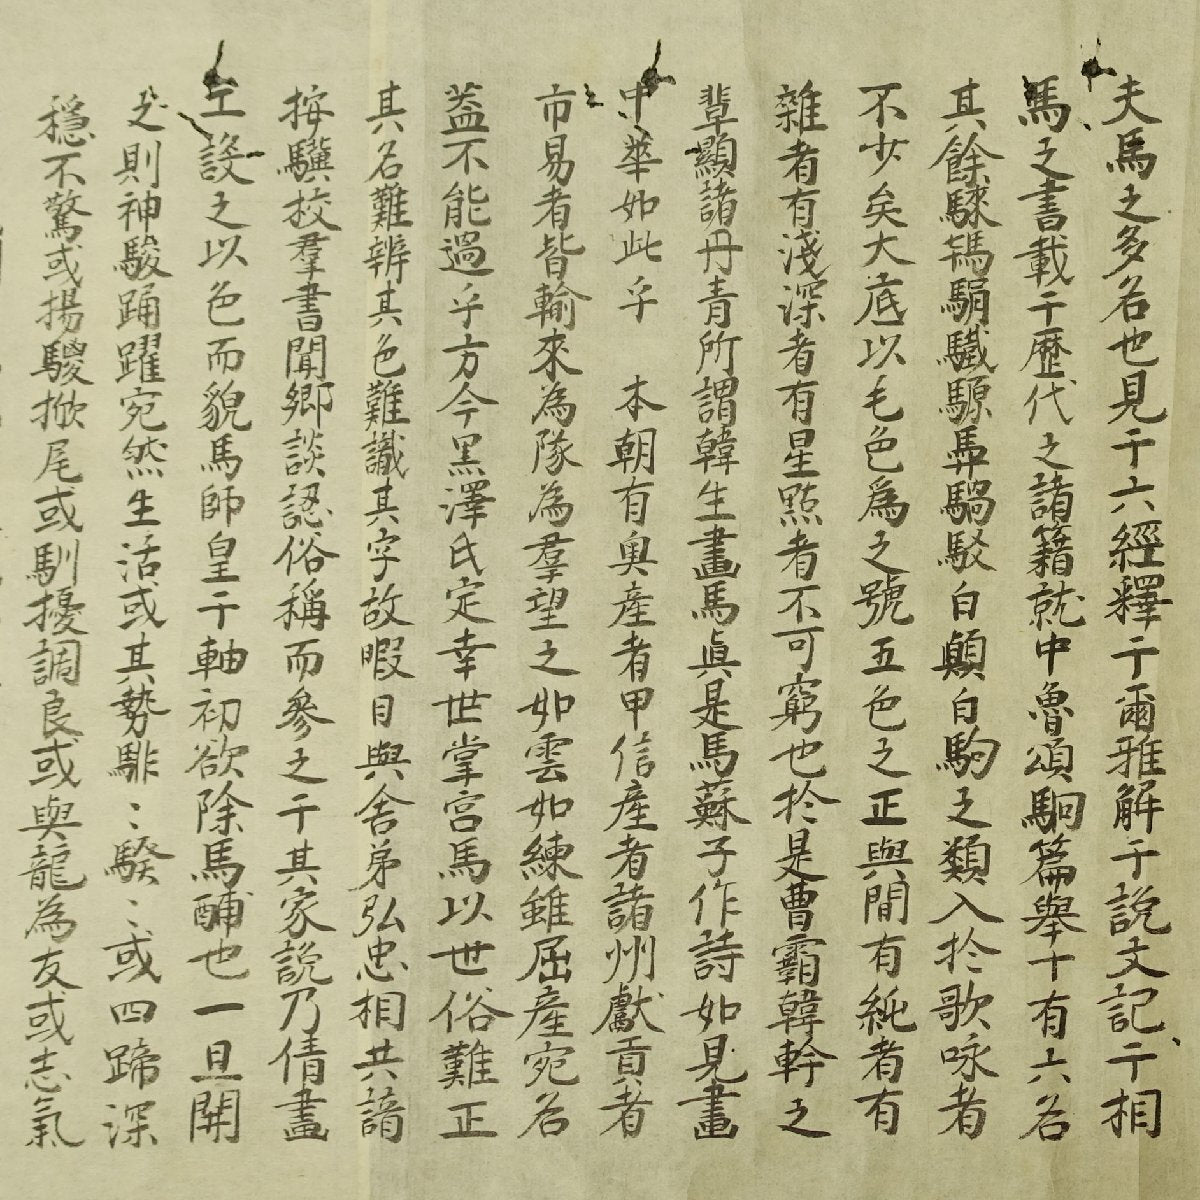 夫馬之多名也見于六經釋于爾雅解于說文記于相
馬之書載于歷代之諸籍就中魯頌駉篇舉十有六名
其餘騋駂騆驖騵馵騧駁白顛白駒之類入於歌咏者
不少矣大底以毛色爲之號五色之正與間有純者有
雜者有淺深者有星點者不可窮也於是曹霸韓幹之
輩顯諸丹青所謂韓生畫馬眞是馬蘇子作詩如見畫
中華如此乎 本朝有奥產者甲信產者諸州獻貢者
市易者皆輸來為隊為羣望之如雲如練雖屈產宛名
盖不能過乎方今黑澤氏定幸世掌宮馬以世俗難正
其名難辨其色難識其字故暇日與舍弟弘忠相共諳
按驥挍羣書聞鄉談認俗稱而參之于其家說乃倩畫
工設之以色而貌馬師皇于軸初欲除馬酺也一旦開
之則神駿踊躍宛然生活或其勢騑〻騤〻或四蹄深
穩不驚或揚騣掀尾或馴擾調良或與龍為友或志氣